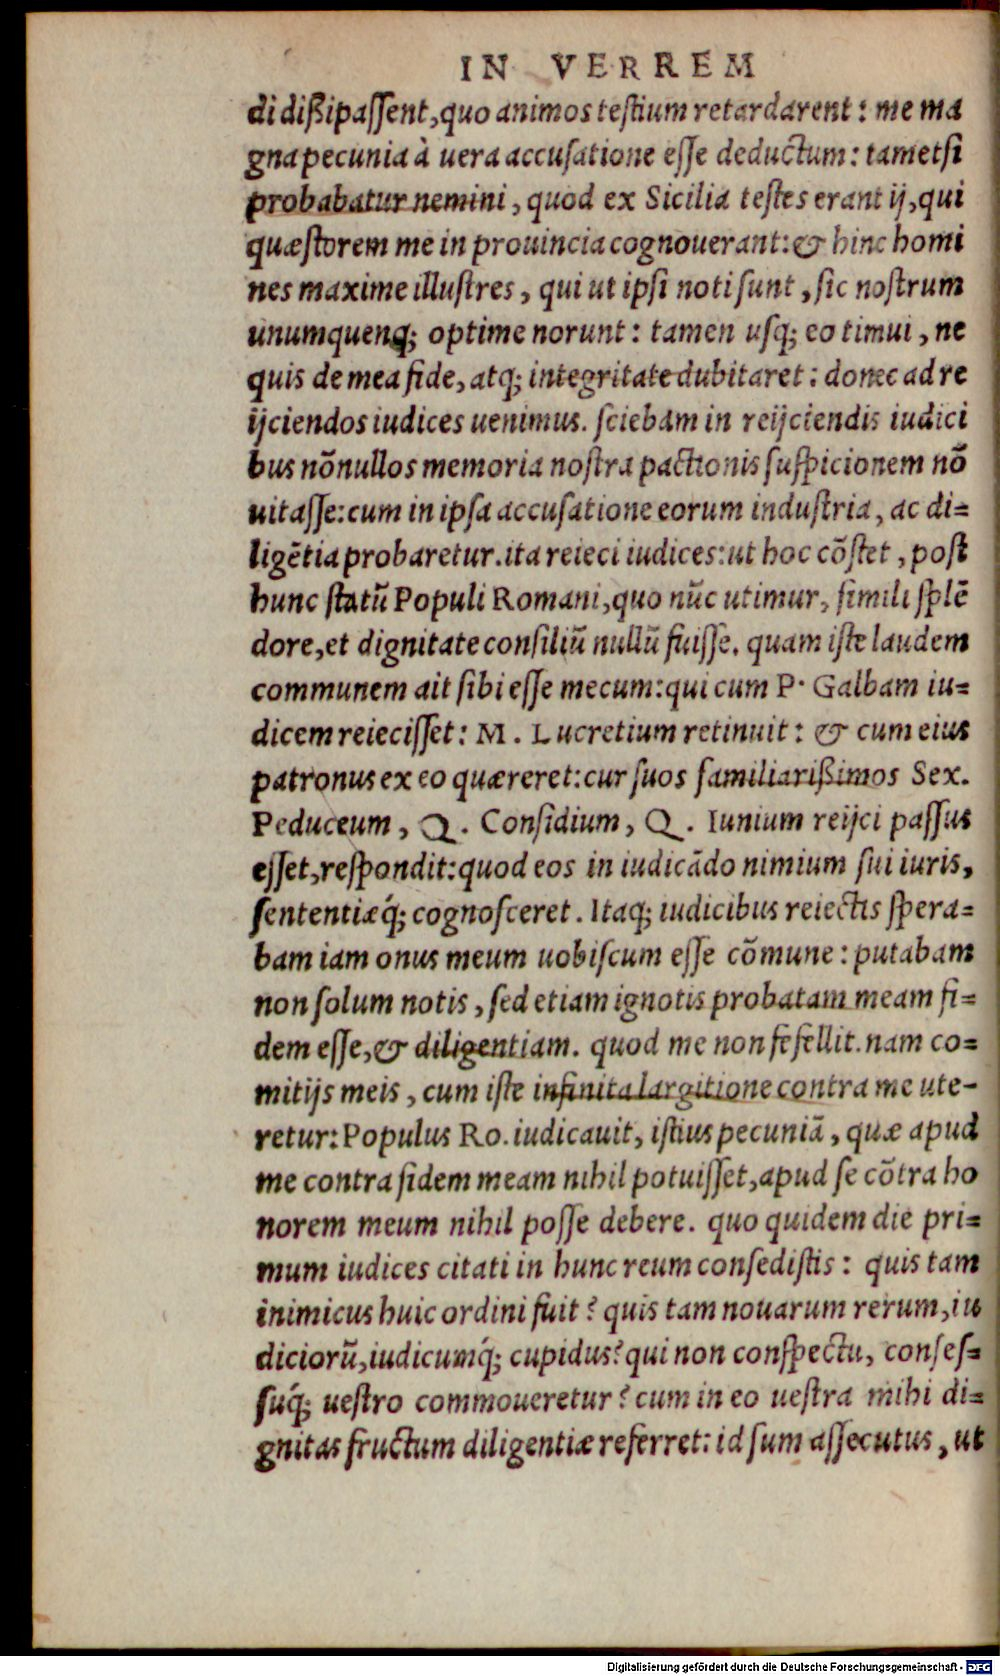 IN VERREM
di dißipaſſent, quo animos teſtium retardarent: me ma
gna pecunia à uera accuſatione eſſe deductum: tametſi
probabatur nemini, quod ex Sicilia teſtes erant ij, qui
quæſtorem me in prouincia cognouerant: & hinc homi
nes maxime illuſtres, qui ut ipſi noti ſunt, ſic noſtrum
unumquenq; optime norunt: tamen uſq; eo timui, ne
quis de mea fide, atq; integritate dubitaret: donec ad re
ijciendos iudices uenimus. ſciebam in reijciendis iudici
bus nõnullos memoria noſtra pactionis ſuſpicionem nõ
uitaſſe: cum in ipſa accuſatione eorum induſtria, ac di=
ligẽtia probaretur. ita reieci iudices: ut hoc cõſtet, poſt
hunc ſtatũ Populi Romani, quo nũc utimur, ſimili ſplẽ
dore, et dignitate conſiliũ nullũ fuiſſe. quam iſte laudem
communem ait ſibi eſſe mecum: qui cum P. Galbam iu=
dicem reieciſſet: M. Lucretium retinuit: & cum eius
patronus ex eo quæreret: cur ſuos familiarißimos Sex.
Peduceum, Q. Conſidium, Q. Iunium reijci paſſus
eſſet, reſpondit: quod eos in iudicãdo nimium ſui iuris,
ſententiæq́; cognoſceret. Itaq; iudicibus reiectis ſpera=
bam iam onus meum uobiſcum eſſe cõmune: putabam
non ſolum notis, ſed etiam ignotis probatam meam fi=
dem eſſe, & diligentiam. quod me non fefellit. nam co=
mitijs meis, cum iſte infinita largitione contra me ute-
retur: Populus Ro. iudicauit, iſtius pecuniã, quæ apud
me contra fidem meam nihil potuiſſet, apud ſe cõtra ho
norem meum nihil poſſe debere. quo quidem die pri=
mum iudices citati in hunc reum conſediſtis: quis tam
inimicus huic ordini fuit? quis tam nouarum rerum, iu
diciorũ, iudicumq́; cupidus? qui non conſpectu, conſeſ=
ſuq́; ueſtro commoueretur? cum in eo ueſtra mihi di=
gnitas fructum diligentiæ referret: id ſum aſſecutus, ut
Digitalisierung gefördert durch die Deutsche Forschungsgemeinschaft - DFG